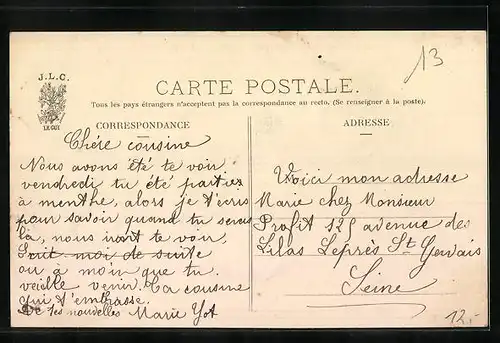 13
J.L.C.
LE GUI
CARTE POSTALE.
Tous les pays étrangers n'acceptent pas la correspondance au recto. (Se renseigner à la poste).
CORRESPONDANCE
Chére cousine
Nous avons été te voir
vendredi tu été partiez
à menthe, alors je t'écris
pour savoir quand tu seras
là, nous iront te voir,
Ecrit-moi de suite
ou à moin que tu
veille venir. Ta cousine
qui t'embrasse.
De tes nouvelles Marie
ADRESSE
Voici mon adresse
Marie chez Monsieur
Profit 125 avenue des
Lilas Leprès St
Gervais
Seine
12.-